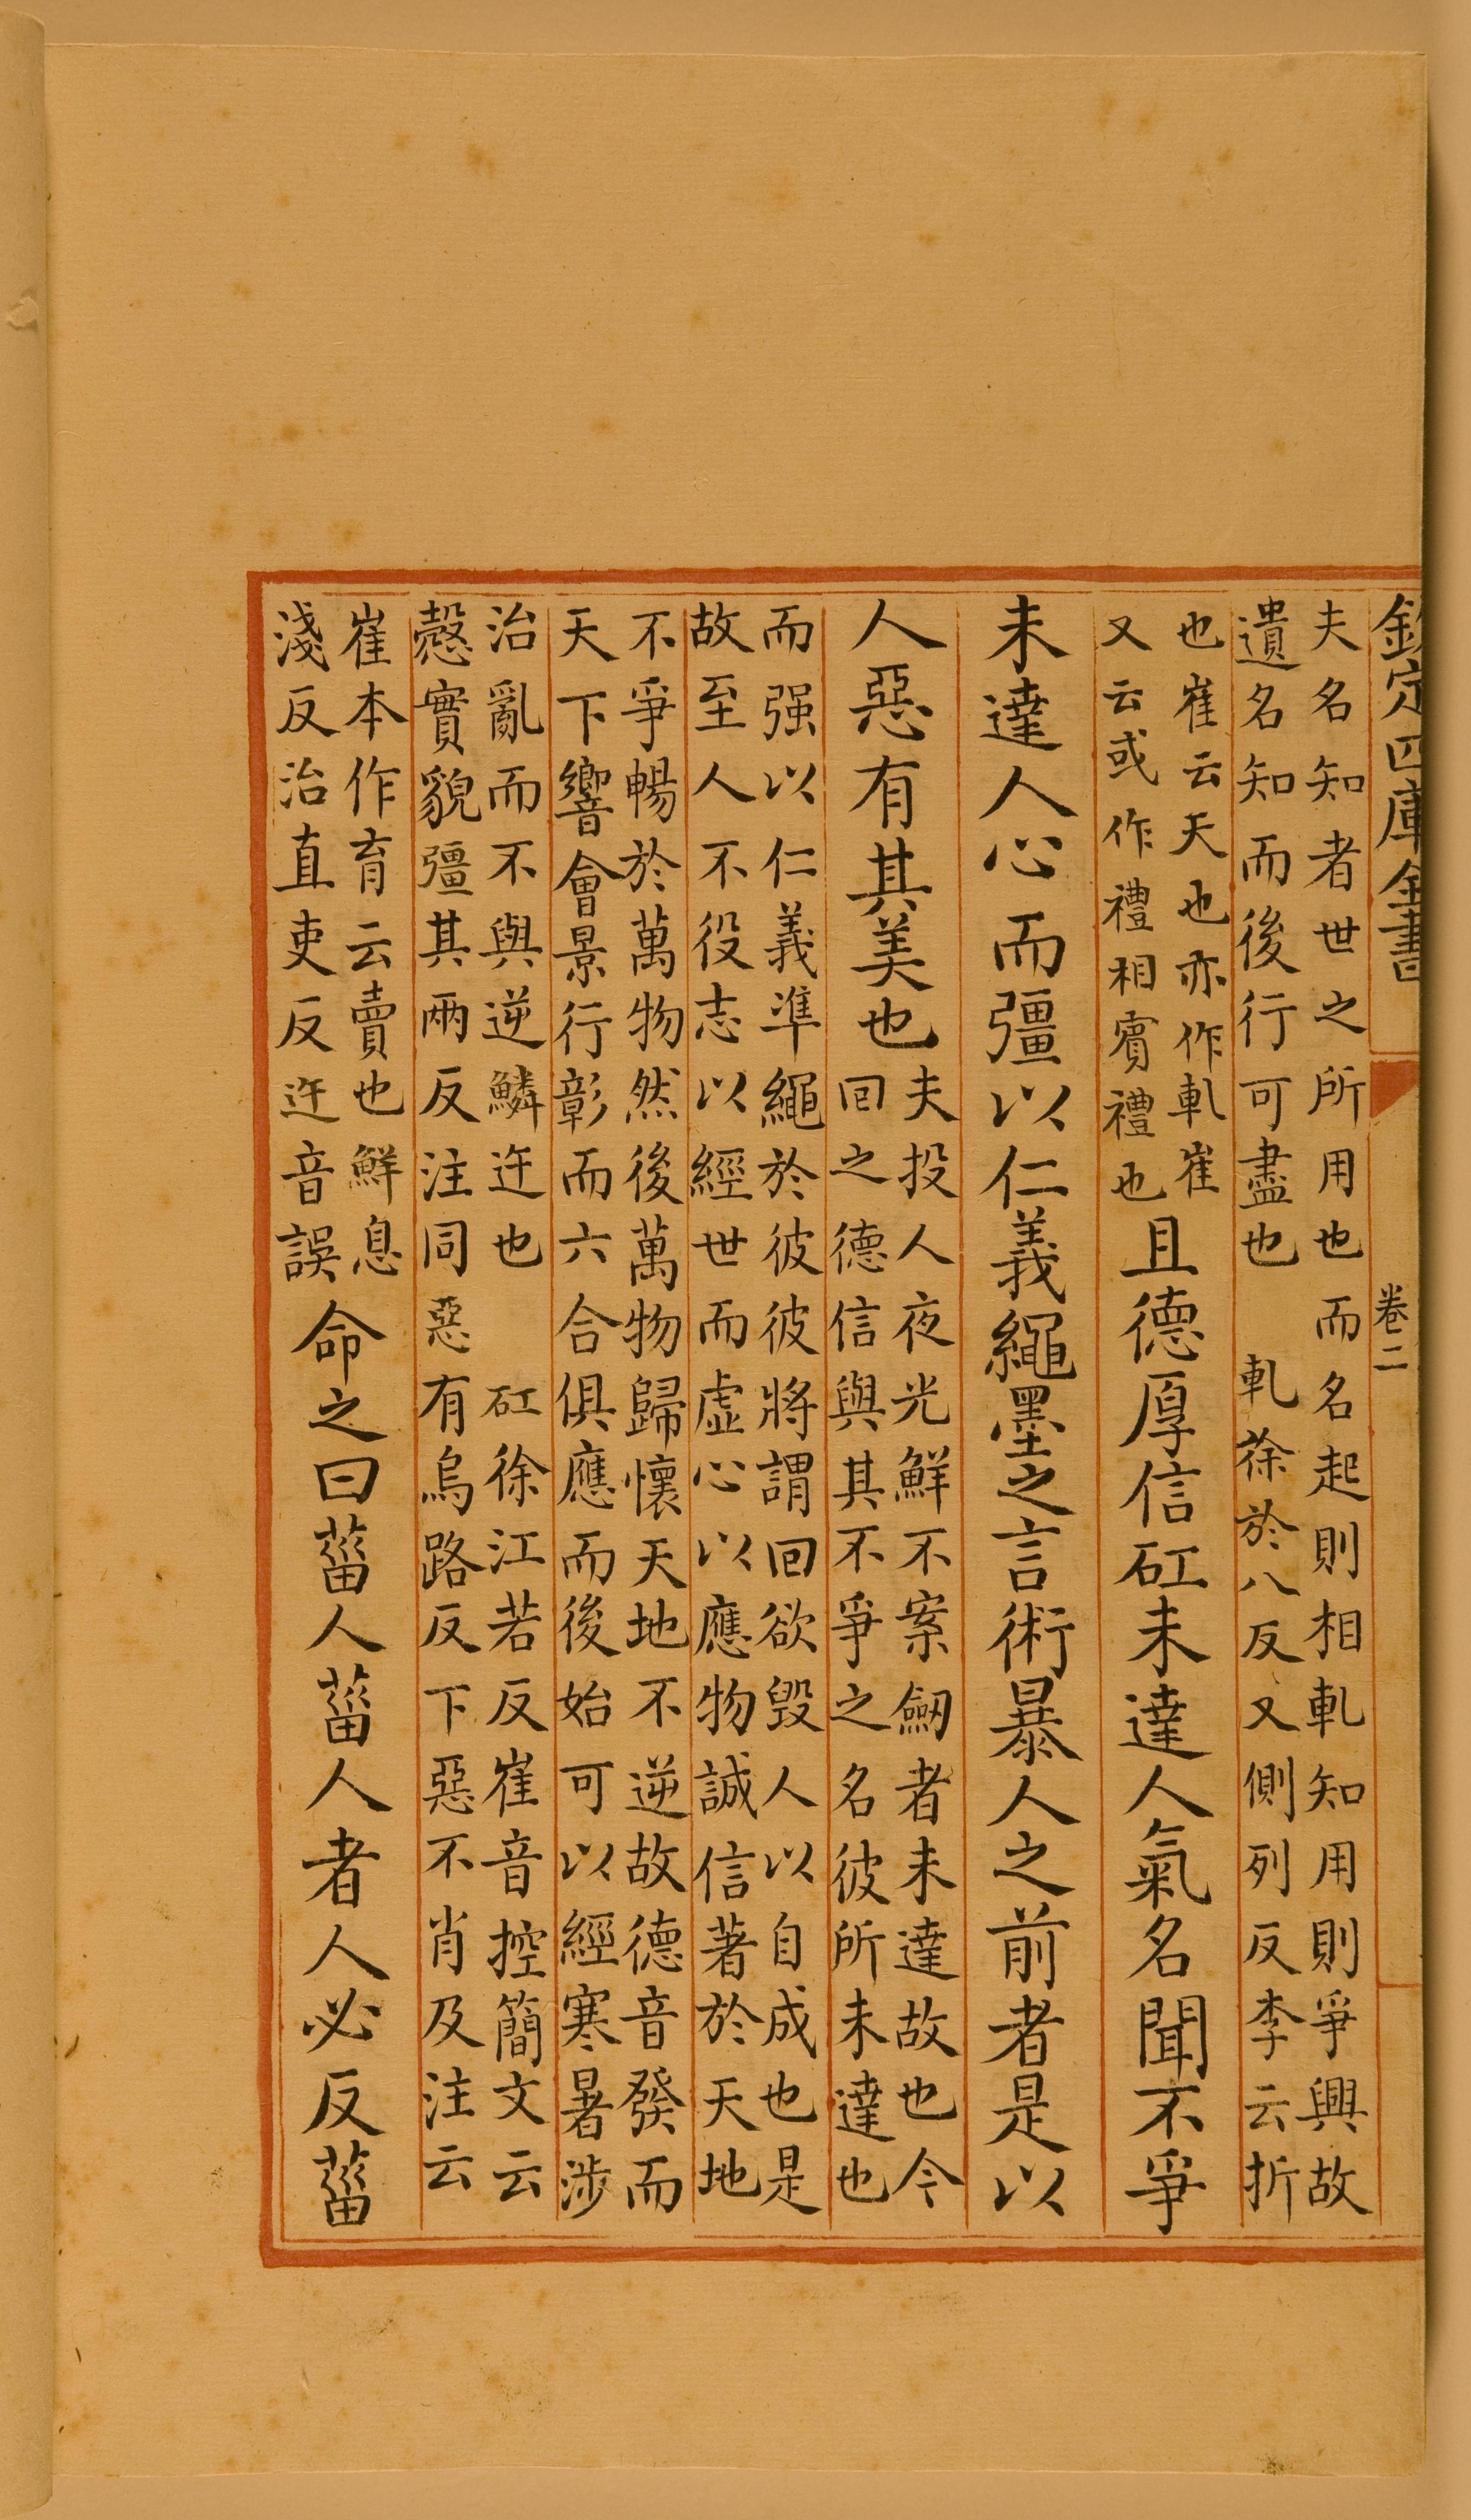 欽定四庫全書
卷二
夫名知者世之所用也而名起則相軋知用則爭興故
遺名知而後行可盡也　軋徐於八反又側列反李云折
也崔云天也亦作軋崔
又云或作禮相賓禮也
且德厚信矼未達人氣名聞不爭
未達人心而彊以仁義繩墨之言術暴人之前者是以
人惡有其美也
夫投人夜光鮮不案劒者未達故也今
回之德信與其不爭之名彼所未達也
而强以仁義準繩於彼彼將謂回欲毀人以自成也是
故至人不役志以經世而虛心以應物誠信著於天地
不爭暢於萬物然後萬物歸懷天地不逆故德音發而
天下響會景行彰而六合俱應而後始可以經寒暑涉
治亂而不與逆鱗迕也　矼徐江若反崔音控簡文云
慤實貌彊其兩反注同惡有烏路反下惡不肖及注云
崔本作育云賣也鮮息
淺反治直吏反迕音誤
命之曰菑人菑人者人必反菑